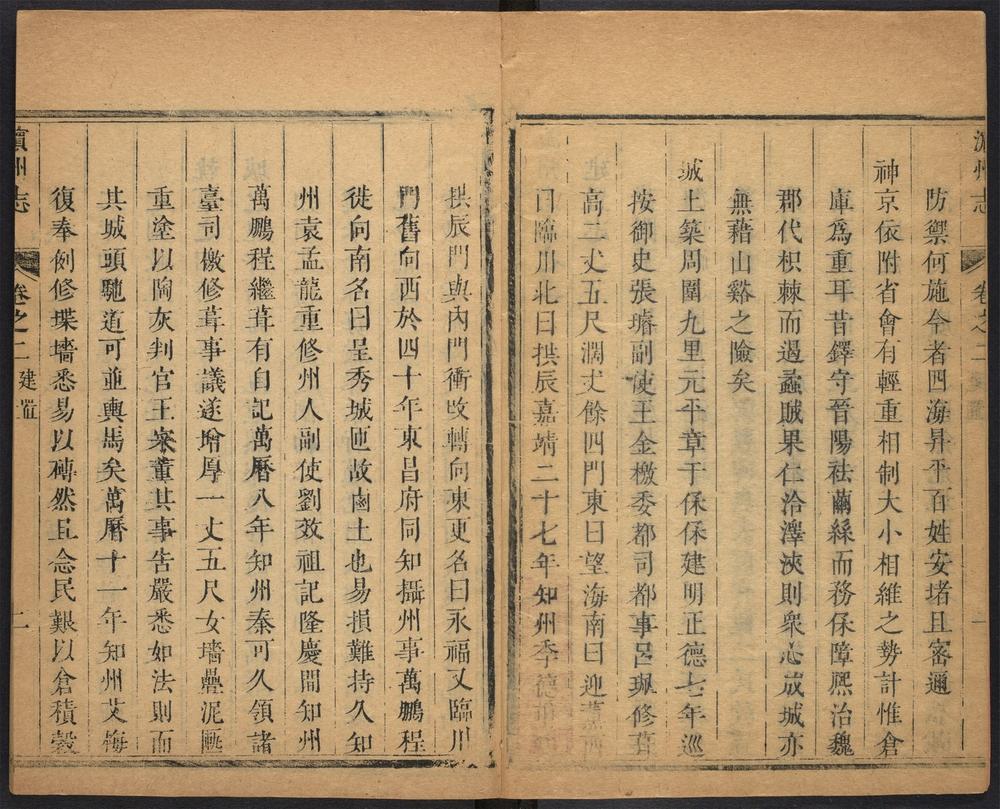 濵州志 卷之二 一
防禦何施今者四海昇平百姓安堵且密邇
神京依附省會有輕重相制大小相維之勢計惟倉
庫爲重耳昔鐸守晉陽袪繭絲而務保障熙治魏
郡代枳棘而過蟊賊果仁洽澤浹則衆心成城亦
無藉山谿之險矣
城土築周圍九里元平章于保保建明正德七年巡
按御史張璿副使王金檄委都司都事呂珮修葺
高二丈五尺濶丈餘四門東曰望海南曰迎
曰臨川北曰拱辰嘉靖二十七年知州季德
拱辰門與內門衝改轉向東更名曰永福又臨川
門舊向西於四十年東昌府同知攝州事萬鵬程
徙向南名曰呈秀城匝故鹵土也易損難持久知
州袁孟龍重修州人副使劉效祖記隆慶間知州
萬鵬程繼葺有自記萬曆八年知州秦可久領諸
臺司檄修葺事議遂增厚一丈五尺女墻疊泥甎
重塗以陶灰判官王寀董其事吿嚴悉如法則而
其城頭馳道可並輿馬矣萬曆十一年知州艾梅
復奉例修堞墻悉易以磚然且念民艱以倉積穀
濵州志 卷之二 建置 二